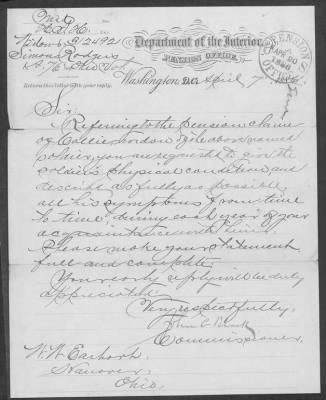 Widow's 312492
Simon Rodgers
Department of the Interior,
PENSION OFFICE,
Washington, D.C. April 7
Return this letter with your reply.
PENSION
APR 20
OFFICE
Sir:
Referring to the pension claim
of Callie, widow of the above named
soldier, you are requested to give the
soldier's physical condition and
describe as fully as possible
all his symptoms from time
to time, during each year of your
acquaintance with him.
Please make your statement
full and complete.
Your early reply will be duly
appreciated.
Very respectfully,
John C. Black
Commissioner.
W. W. Earhart,
Hanover,
Ohio.